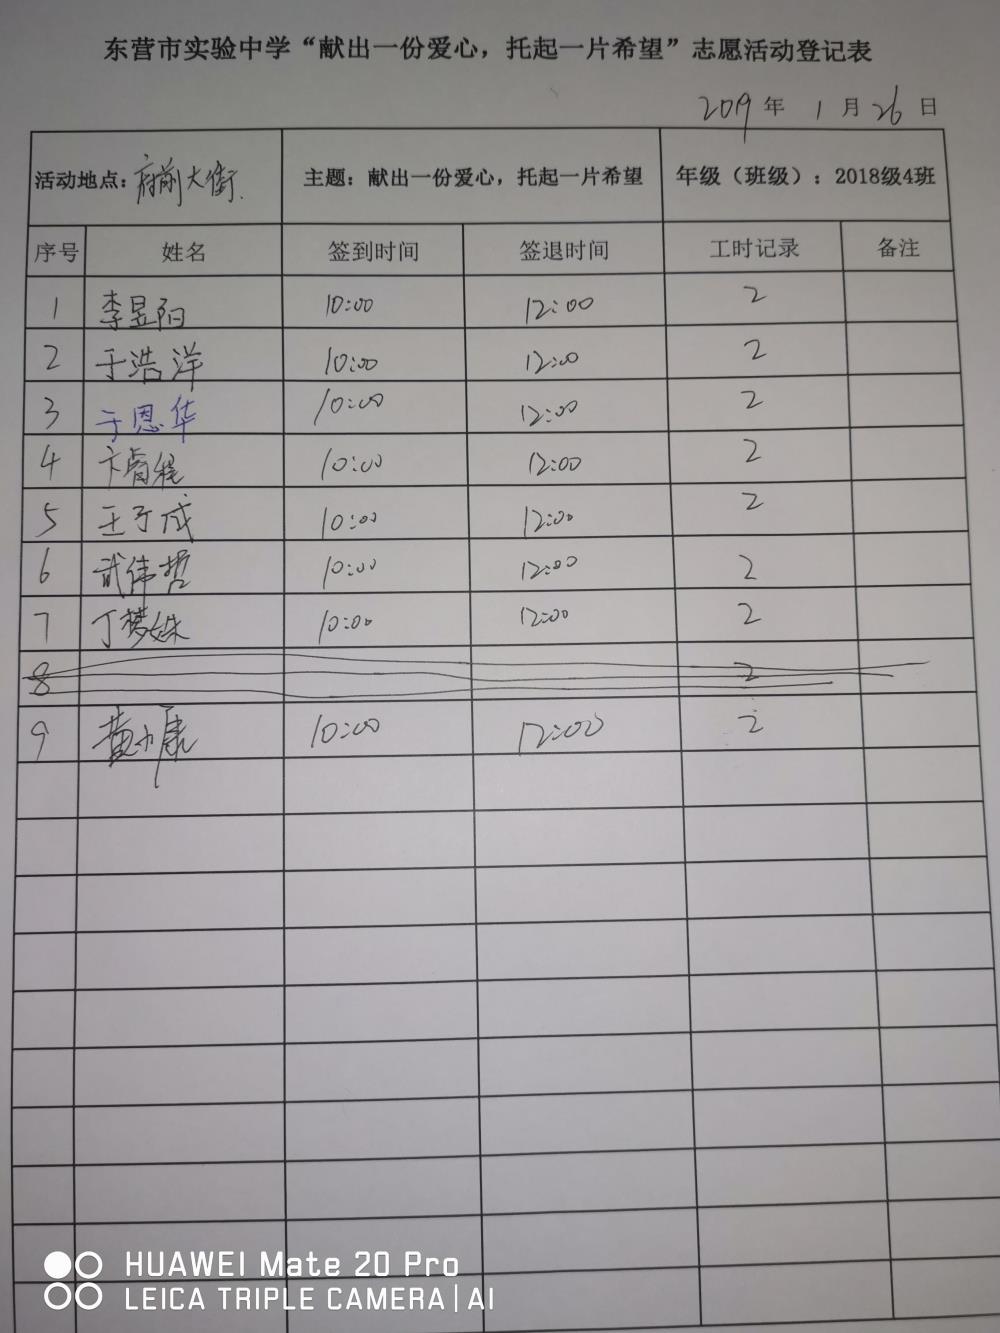 东营市实验中学“献出一份爱心，托起一片希望”志愿活动登记表
2019年 1月26日
活动地点：府前大街 主题：献出一份爱心，托起一片希望 年级（班级）：2018级4班
序号 姓名 签到时间 签退时间 工时记录 备注
1 李昱阳 10:00 12:00 2
2 于浩洋 10:00 12:00 2
3 于恩华 10:00 12:00 2
4 卞睿程 10:00 12:00 2
5 王子成 10:00 12:00 2
6 武伟哲 10:00 12:00 2
7 丁梦姝 10:00 12:00 2
8 2
9 黄小康 10:00 12:00 2
HUAWEI Mate 20 Pro
LEICA TRIPLE CAMERA | AI